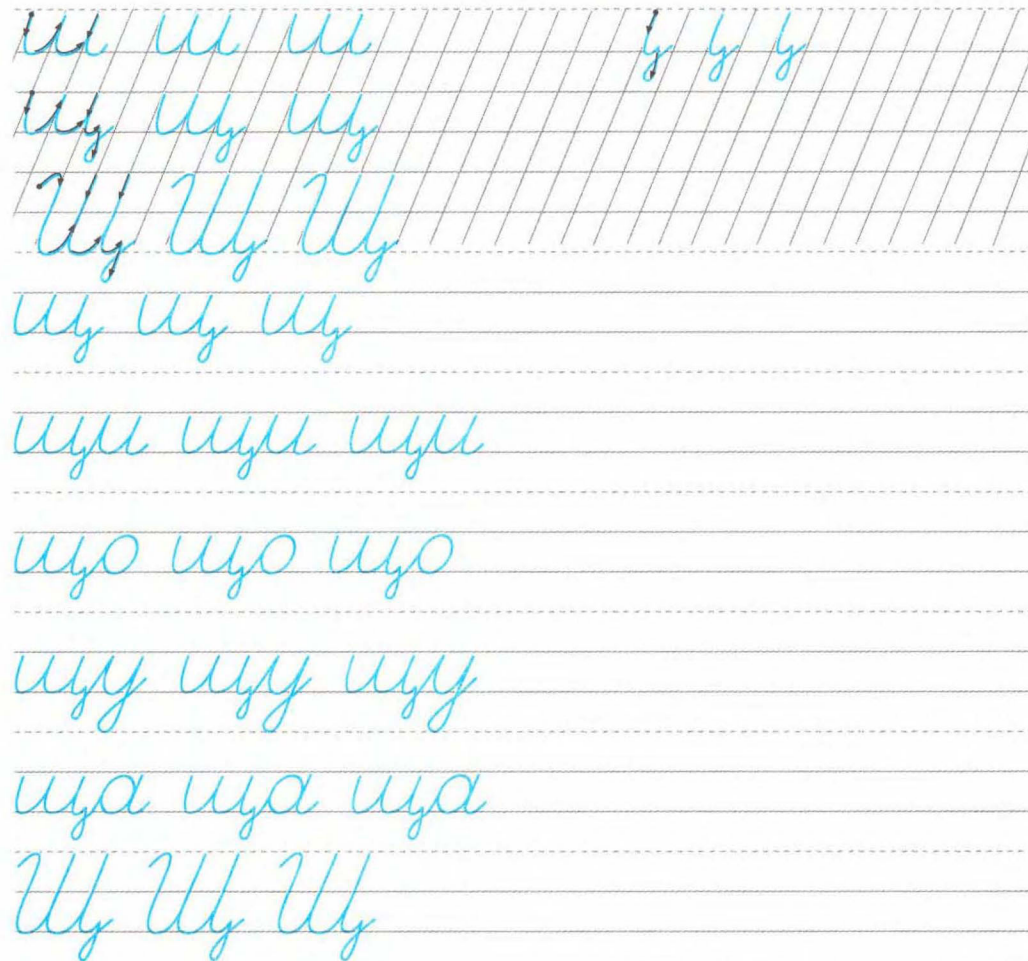 ш ш ш
щ щ щ
Щ Щ Щ
щ щ щ
щи щи щи
що що що
щу щу щу
ща ща ща
Щ Щ Щ